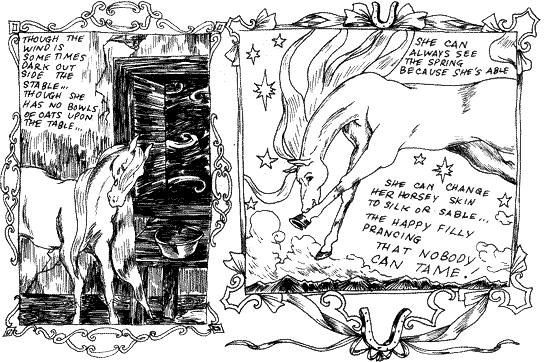 THOUGH THE
WIND IS
SOMETIMES
DARK OUT
SIDE THE
STABLE...
THOUGH SHE
HAS NO BOWLS
OF OATS UPON
THE TABLE...
SHE CAN
ALWAYS SEE
THE SPRING
BECAUSE SHE'S ABLE
SHE CAN CHANGE
HER HORSEY SKIN
TO SILK OR SABLE...
THE HAPPY FILLY
PRANCING
THAT NOBODY
CAN TAME!